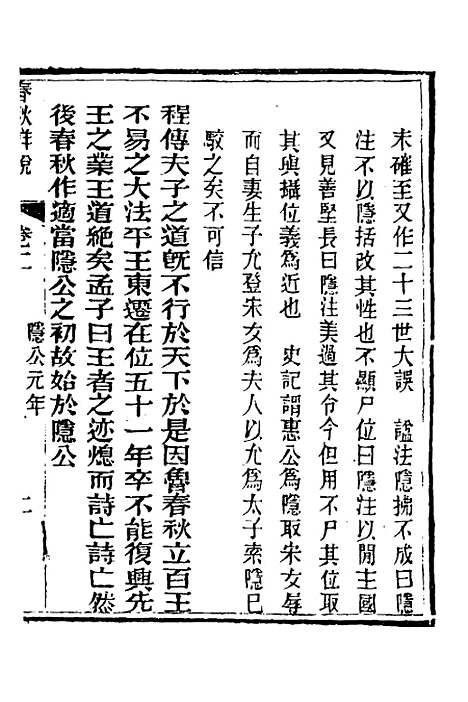 未確至又作二十三世大誤　諡法隱拂不成曰隱
注不以隱括改其性也不顯尸位曰隱注以閒主國
又見善堅長曰隱注美過其令今但用不尸其位取
其與攝位義為近也　史記謂惠公為隱取宋女奪
而自妻生子允登宋女為夫人以允為太子索隱已
駮之矣不可信
程傳夫子之道既不行於天下於是因魯春秋立百王
不易之大法平王東遷在位五十一年卒不能復興先
王之業王道絶矣孟子曰王者之迹熄而詩亡詩亡然
後春秋作適當隱公之初故始於隱公
春秋詳說　卷二　隱公元年　二